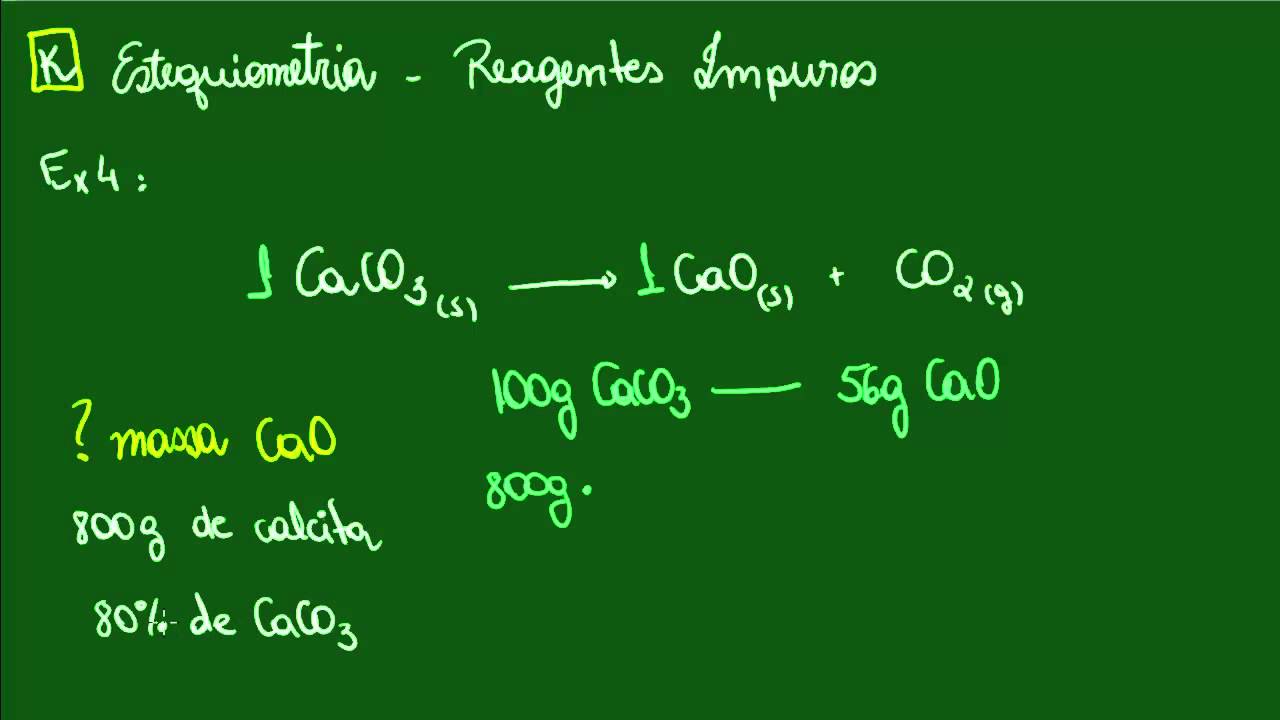 K Estequiometria - Reagentes Impuros
Ex4:
1 CaCO₃(s) → 1 CaO(s) + CO₂(g)
100g CaCO₃ — 56g CaO
? massa CaO
800g .
800g de calcita
80% de CaCO₃